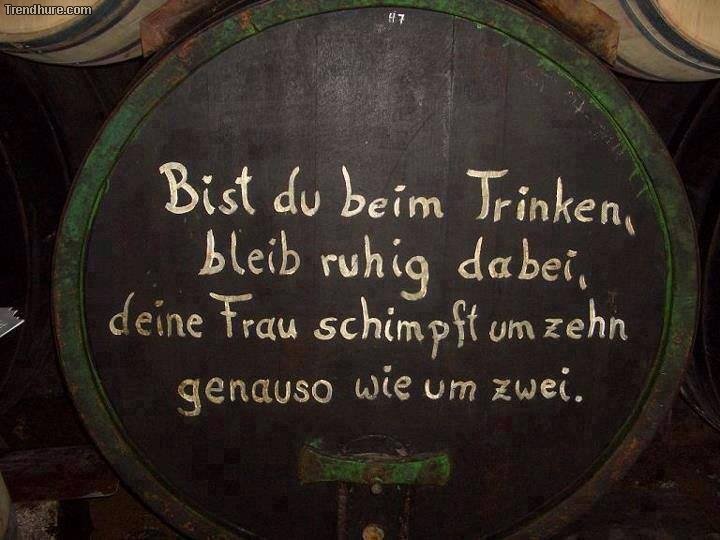 Trendhure.com
47
Bist du beim Trinken,
bleib ruhig dabei,
deine Frau schimpft um zehn
genauso wie um zwei.